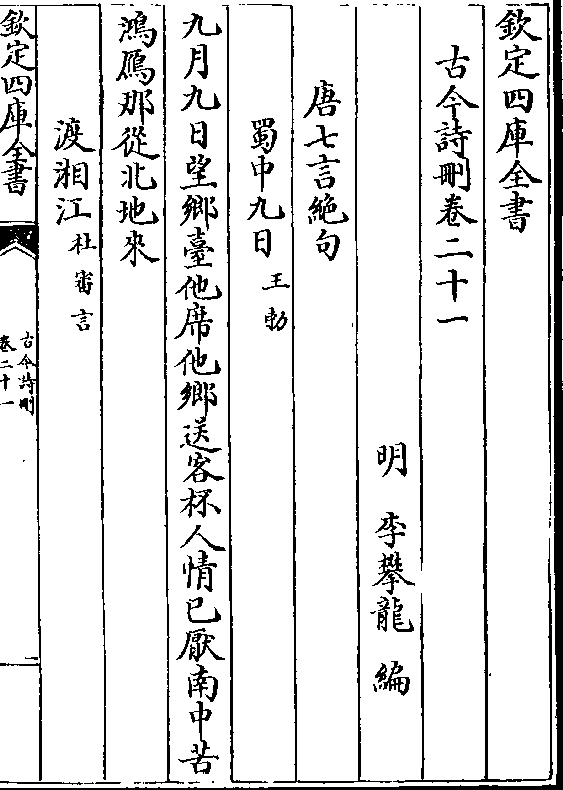 欽定四庫全書
古今詩刪卷二十一
明 李攀龍 編
唐七言絶句
蜀中九日 王勃
九月九日望鄉臺他席他鄉送客杯人情已厭南中苦
鴻鴈那從北地來
渡湘江 杜審言
欽定四庫全書
古今詩刪
卷二十一
一